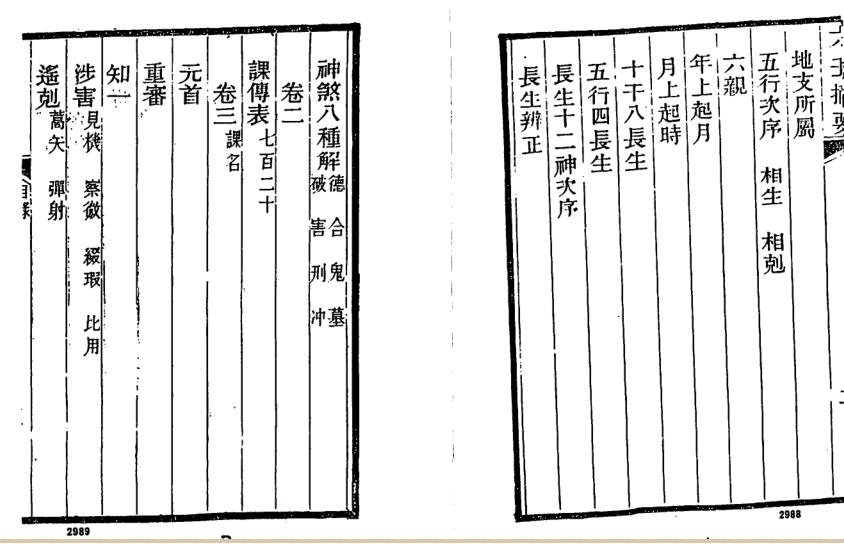 六壬摘要
地支所屬
五行次序 相生 相剋
六親
年上起月
月上起時
十干八長生
五行四長生
長生十二神次序
長生辨正
2988
神煞八種解 德 合 鬼 墓 破 害 刑 冲
卷二
課傳表 七百二十
卷三 課名
元首
重審
知一
涉害 見機 察微 綴瑕 比用
遙剋 蒿矢 彈射
目錄
2989